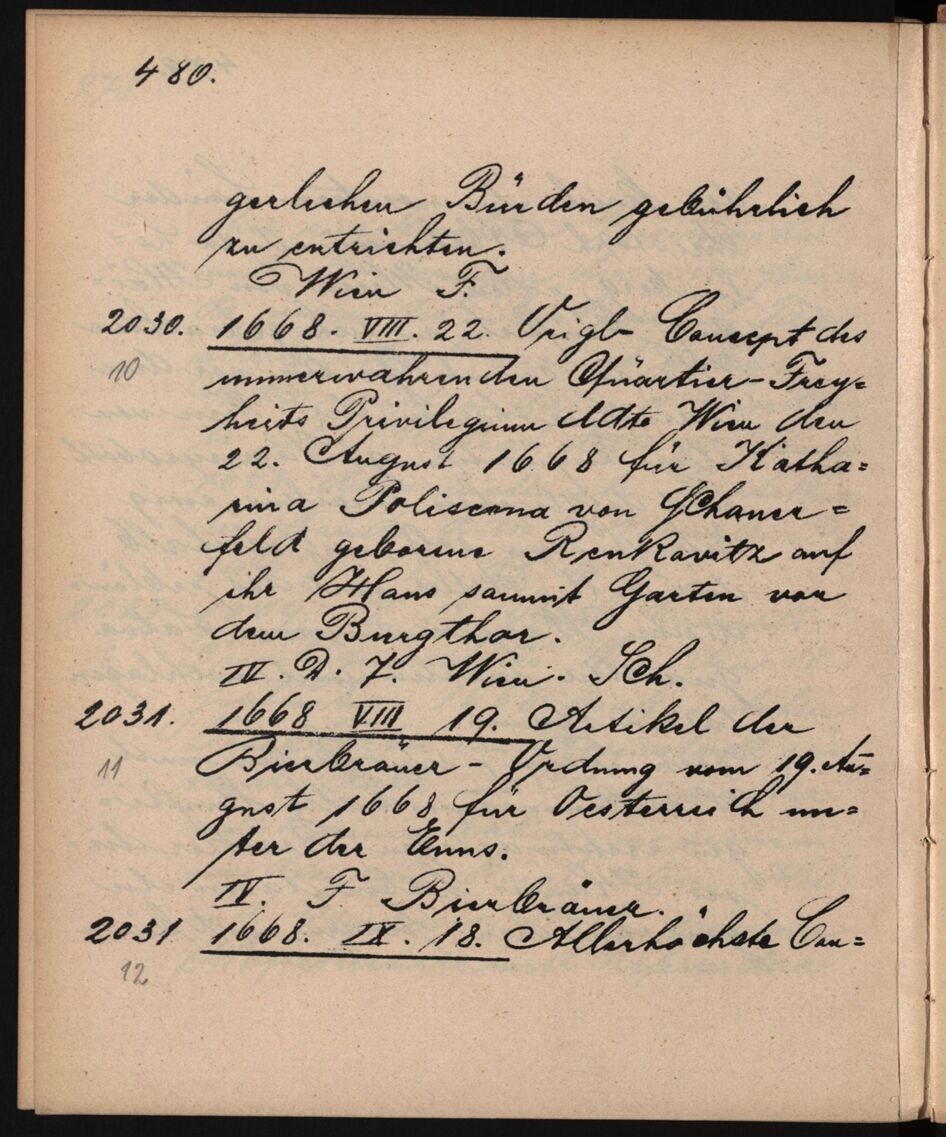 480.
gerlichen Bürden gebührlich
zu entrichten.
Wien F.
2030. 1668. VIII. 22. Origl Concept des
10 immerwahrenden Quartier-Frey=
heits Privilegium ddto Wien den
22. August 1668 für Katha=
rina Poliscena von Schauer=
feld geborene Renkovitz auf
ihr Haus sammt Garten vor
dem Burgthor.
IV. D. 7. Wien. Sch.
2031. 1668 VIII 19. Artikel der
11 Bierbräuer-Ordnung vom 19. Au=
gust 1668 für Oesterreich un=
ter der Enns.
IV. F Bierbräuer.
2031 1668. IX. 18. Allerhöchste Con=
12